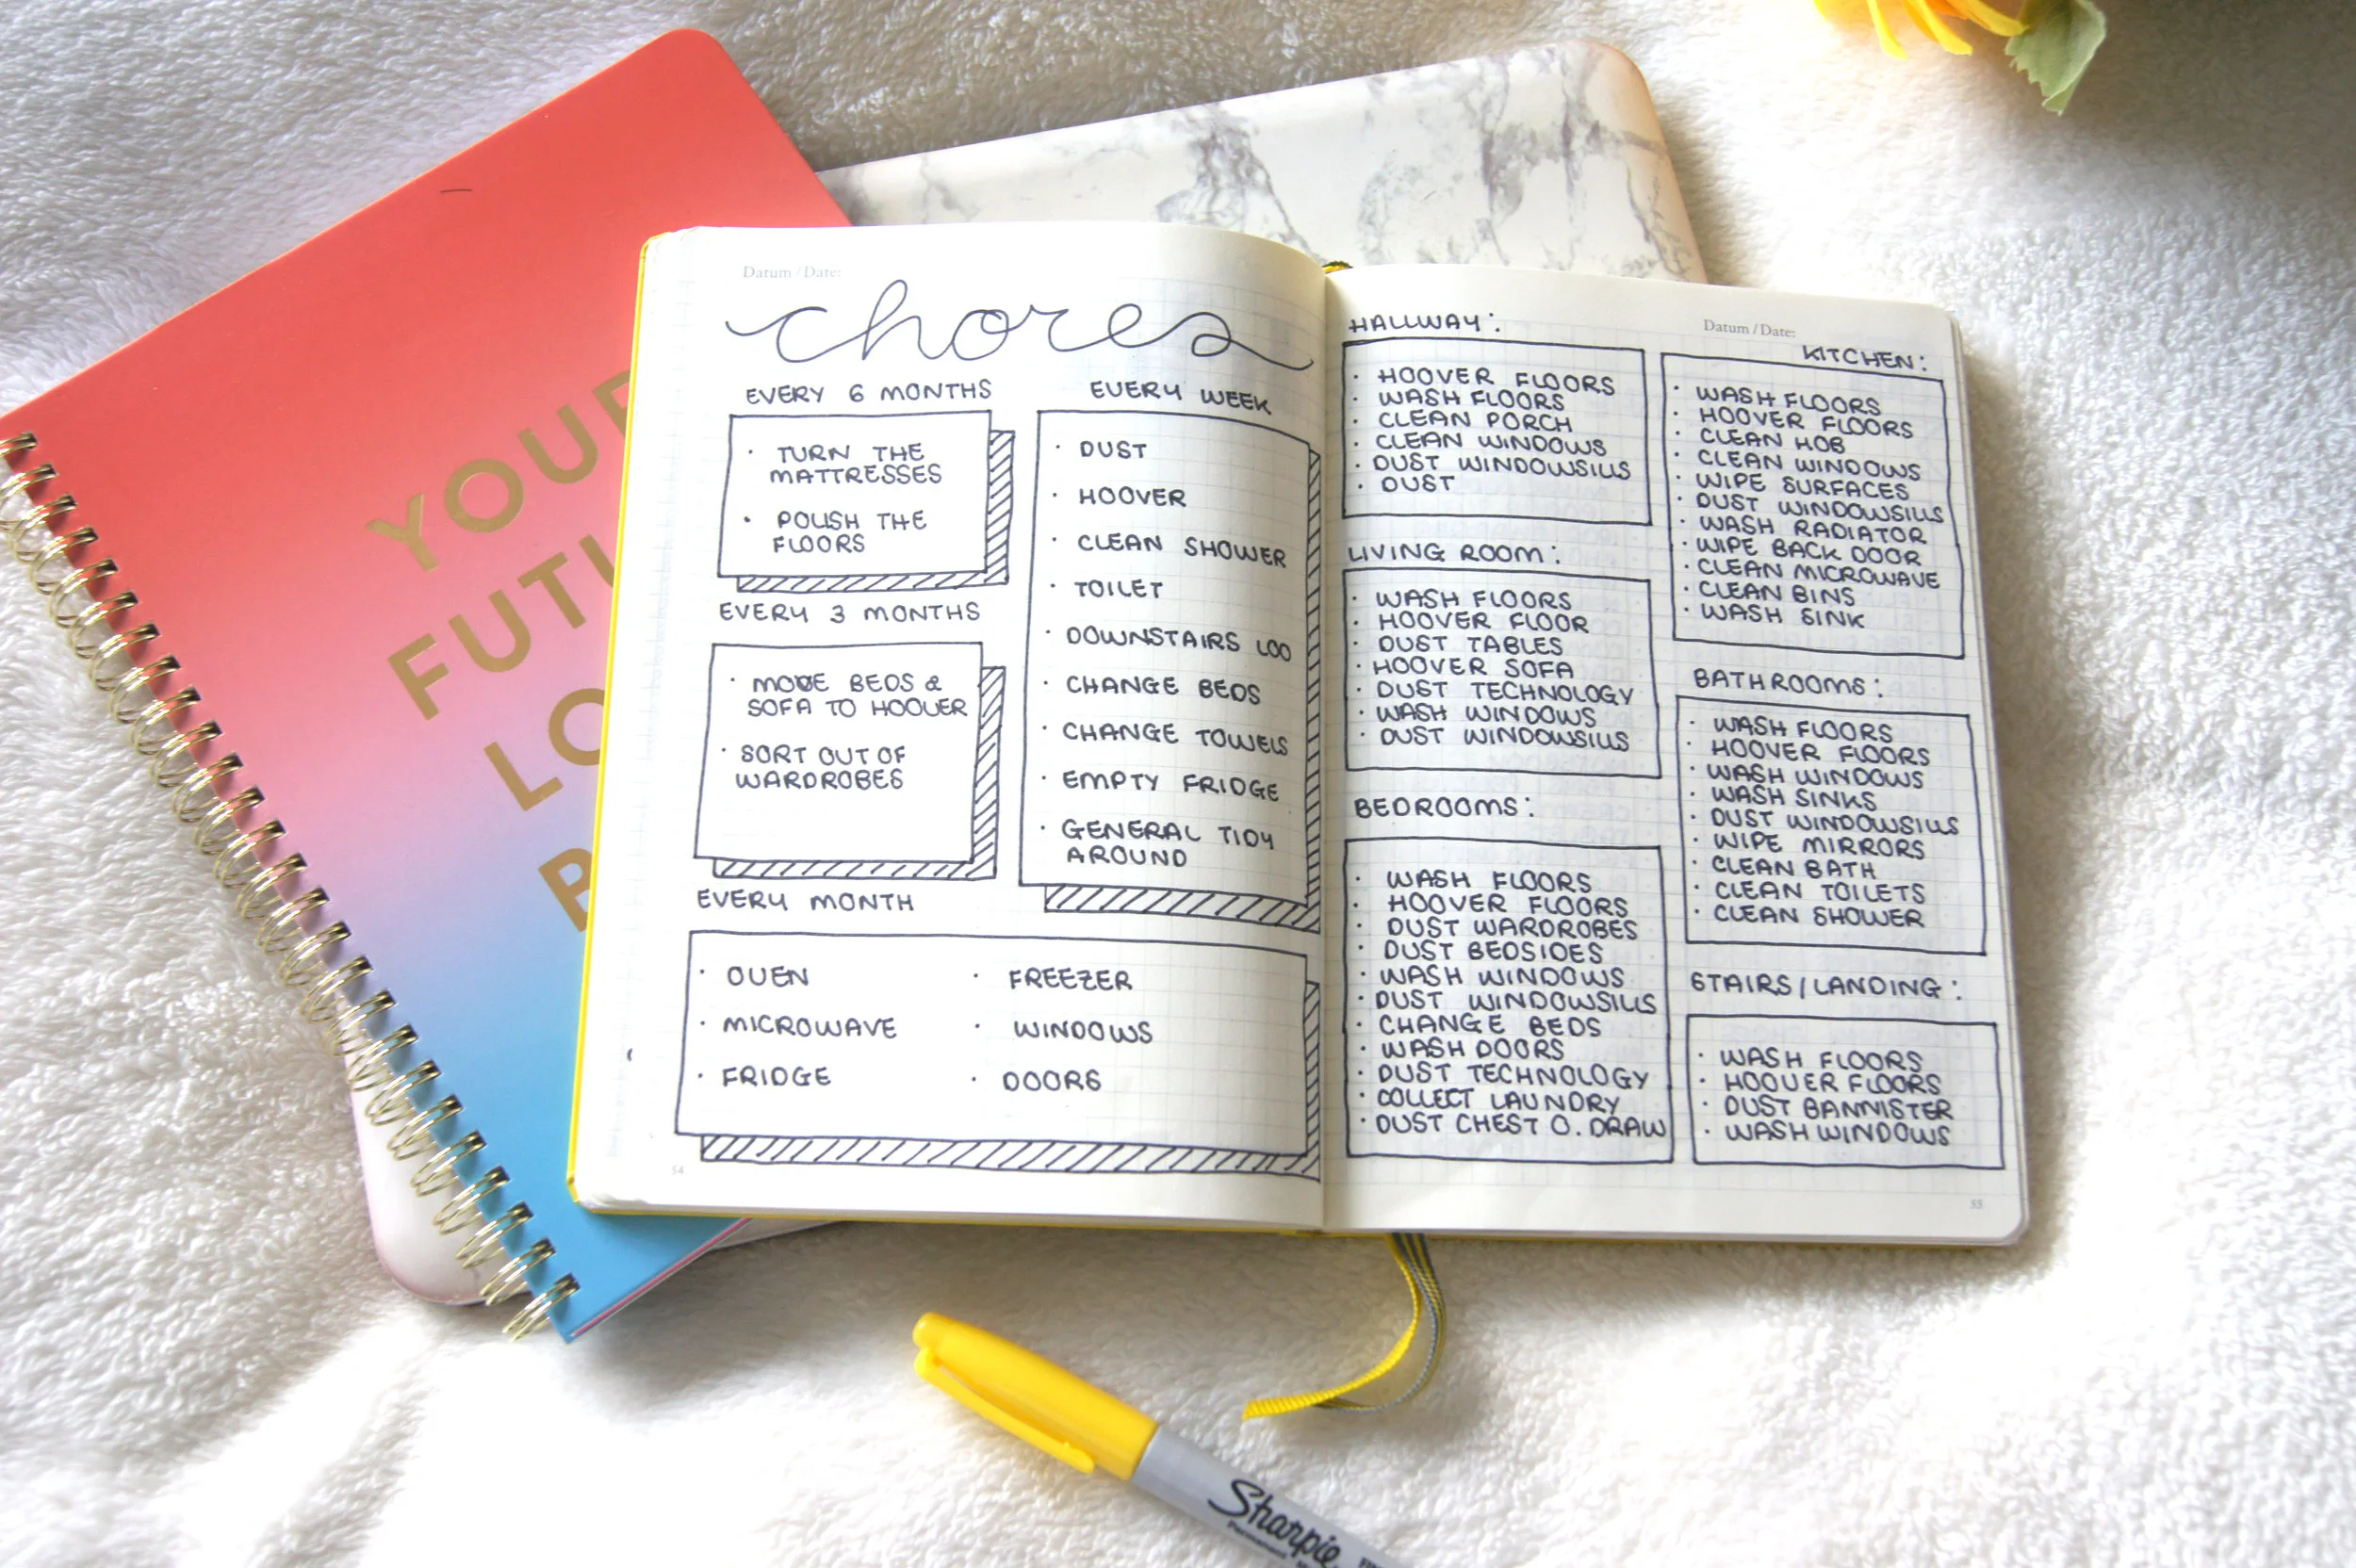 YOUR
FUTU
LO
B
Datum / Date:
chores
EVERY 6 MONTHS
· TURN THE
MATTRESSES
· POLISH THE
FLOORS
EVERY 3 MONTHS
· MOVE BEDS &
SOFA TO HOOVER
· SORT OUT OF
WARDROBES
EVERY WEEK
· DUST
· HOOVER
· CLEAN SHOWER
· TOILET
· DOWNSTAIRS LOO
· CHANGE BEDS
· CHANGE TOWELS
· EMPTY FRIDGE
· GENERAL TIDY
AROUND
EVERY MONTH
· OVEN
· MICROWAVE
· FRIDGE
· FREEZER
· WINDOWS
· DOORS
54
HALLWAY:
· HOOVER FLOORS
· WASH FLOORS
· CLEAN PORCH
· CLEAN WINDOWS
· DUST WINDOWSILLS
· DUST
LIVING ROOM:
· WASH FLOORS
· HOOVER FLOOR
· DUST TABLES
· HOOVER SOFA
· DUST TECHNOLOGY
· WASH WINDOWS
· DUST WINDOWSILLS
BEDROOMS:
· WASH FLOORS
· HOOVER FLOORS
· DUST WARDROBES
· DUST BEDSIDES
· WASH WINDOWS
· DUST WINDOWSILLS
· CHANGE BEDS
· WASH DOORS
· DUST TECHNOLOGY
· COLLECT LAUNDRY
· DUST CHEST O. DRAW
Datum / Date:
KITCHEN:
· WASH FLOORS
· HOOVER FLOORS
· CLEAN HOB
· CLEAN WINDOWS
· WIPE SURFACES
· DUST WINDOWSILLS
· WASH RADIATOR
· WIPE BACK DOOR
· CLEAN MICROWAVE
· CLEAN BINS
· WASH SINK
BATHROOMS:
· WASH FLOORS
· HOOVER FLOORS
· WASH WINDOWS
· WASH SINKS
· DUST WINDOWSILLS
· WIPE MIRRORS
· CLEAN BATH
· CLEAN TOILETS
· CLEAN SHOWER
STAIRS/LANDING:
· WASH FLOORS
· HOOVER FLOORS
· DUST BANNISTER
· WASH WINDOWS
55
Sharpie
Permanent